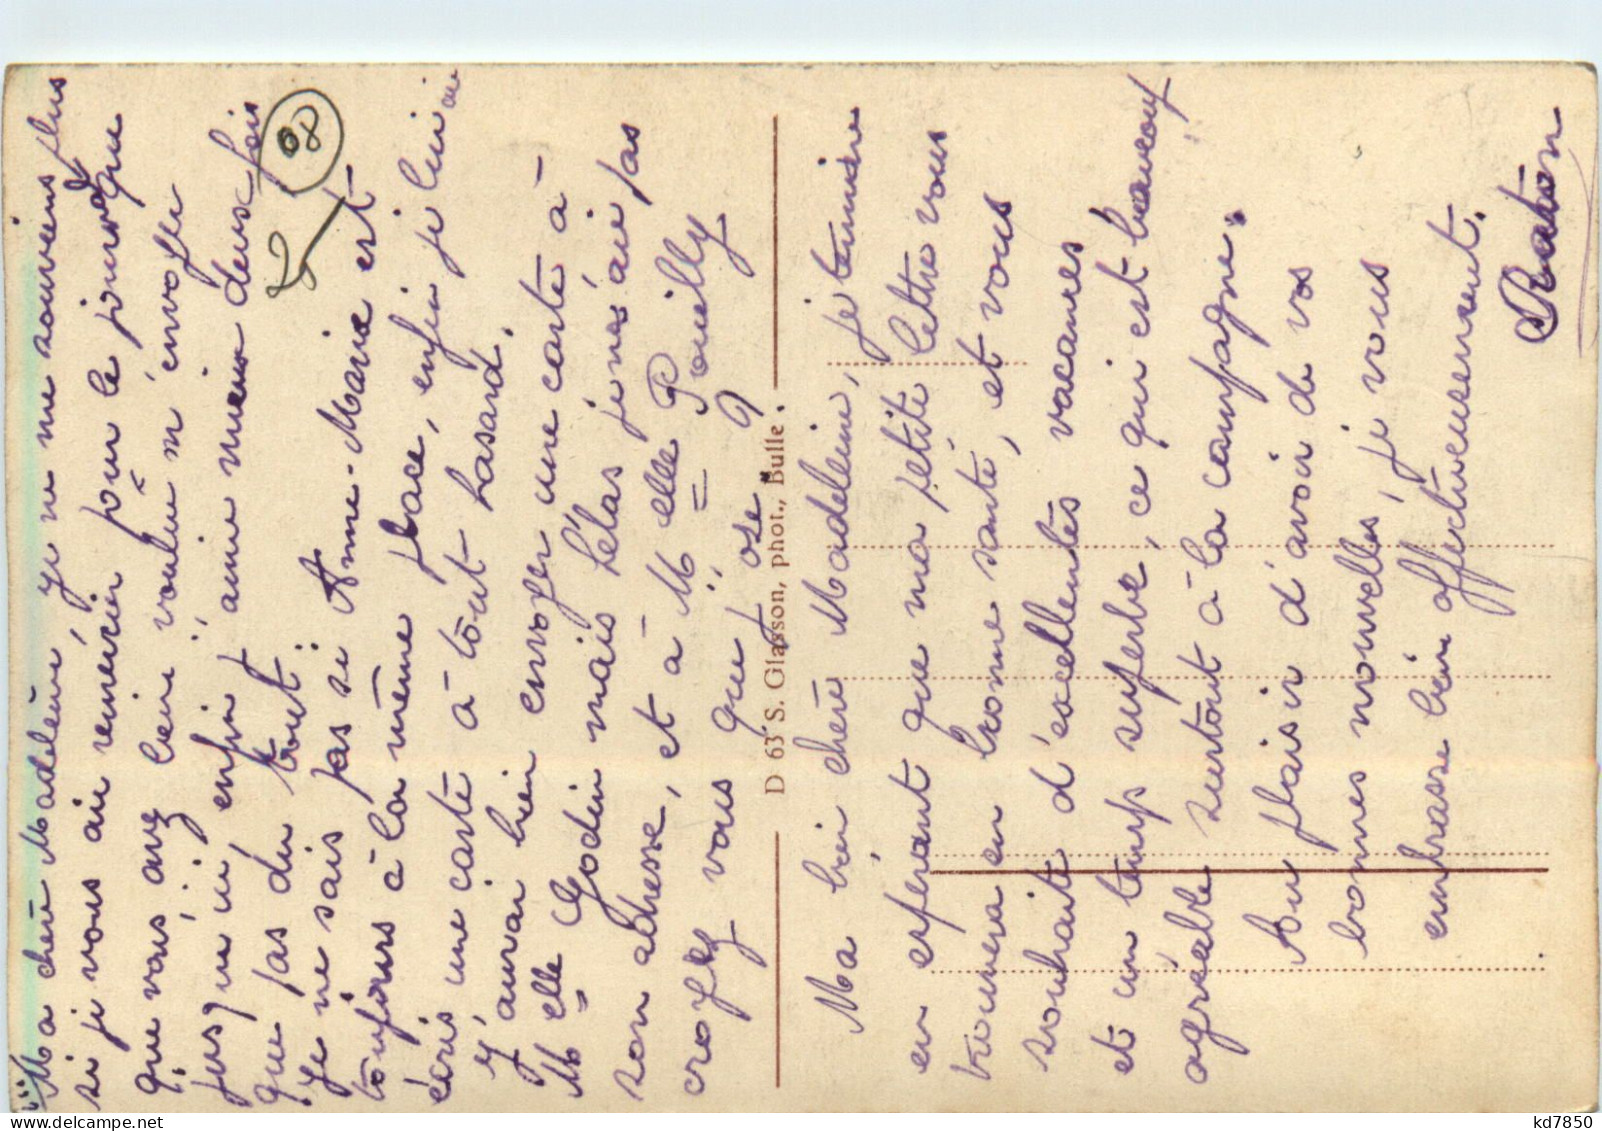 Ma chère Madeleine, je ne me souviens plus
si je vous ai remercier pour le journal que
que vous avez bien voulu m'envoyer
jusqu'ici, enfin j'aime mieux deux fois
que pas du tout.
Je ne sais pas si Anne-Marie est
toujours à la même place, enfin je lui ai
écris une carte à tout hasard.
J'aurai bien envoyer une carte à
Melle Godin mais hélas je n'ai pas
son adresse, et à Melle Pouilly
croyez vous que j'ose ?
08
D 63 S. Glasson, phot., Bulle.
Ma bien chère Madeleine, je termine
en espérant que ma petite lettre vous
trouvera en bonne santé, et vous
souhaite d'excellentes vacances
et un temps superbe, ce qui est beaucoup
agréable surtout à la campagne.
Au plaisir d'avoir de vos
bonnes nouvelles, je vous
embrasse bien affectueusement.
kd7850